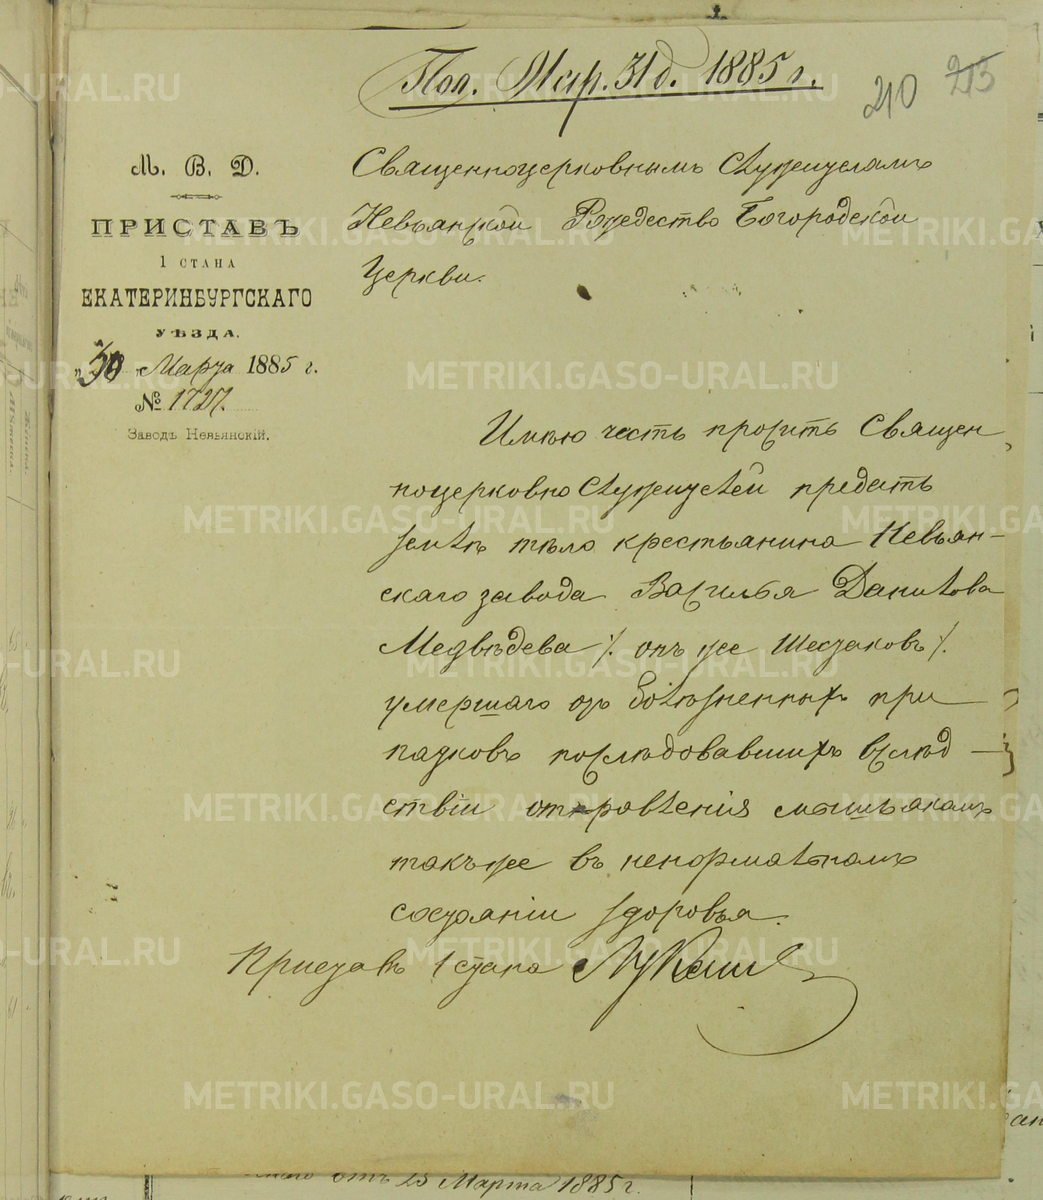 Пол. Мар. 31 д. 1885 г.
210 213
М. В. Д.
ПРИСТАВЪ
1 СТАНА
ЕКАТЕРИНБУРГСКАГО
УѢЗДА.
„30 „ Марта 1885 г.
№ 1727.
Заводъ Невьянскій.
Священноцерковнымъ служителямъ
Невьянской Рождество Богородской
Церкви.
Имѣю честь просить Священ
ноцерковно служителей предать
землѣ тѣло крестьянина Невьян-
скаго завода Василья Данилова
Медвѣдева /. онъ же Шестаковъ /.
умершаго отъ болѣзненныхъ при
падковъ послѣдовавшихъ вслѣд-
ствіи отровленія мышьякомъ
такъже въ ненормальномъ
состояніи здоровья.
Приставъ 1 стана
отъ 25 Марта 1885 г.
METRIKI.GASO-URAL.RU